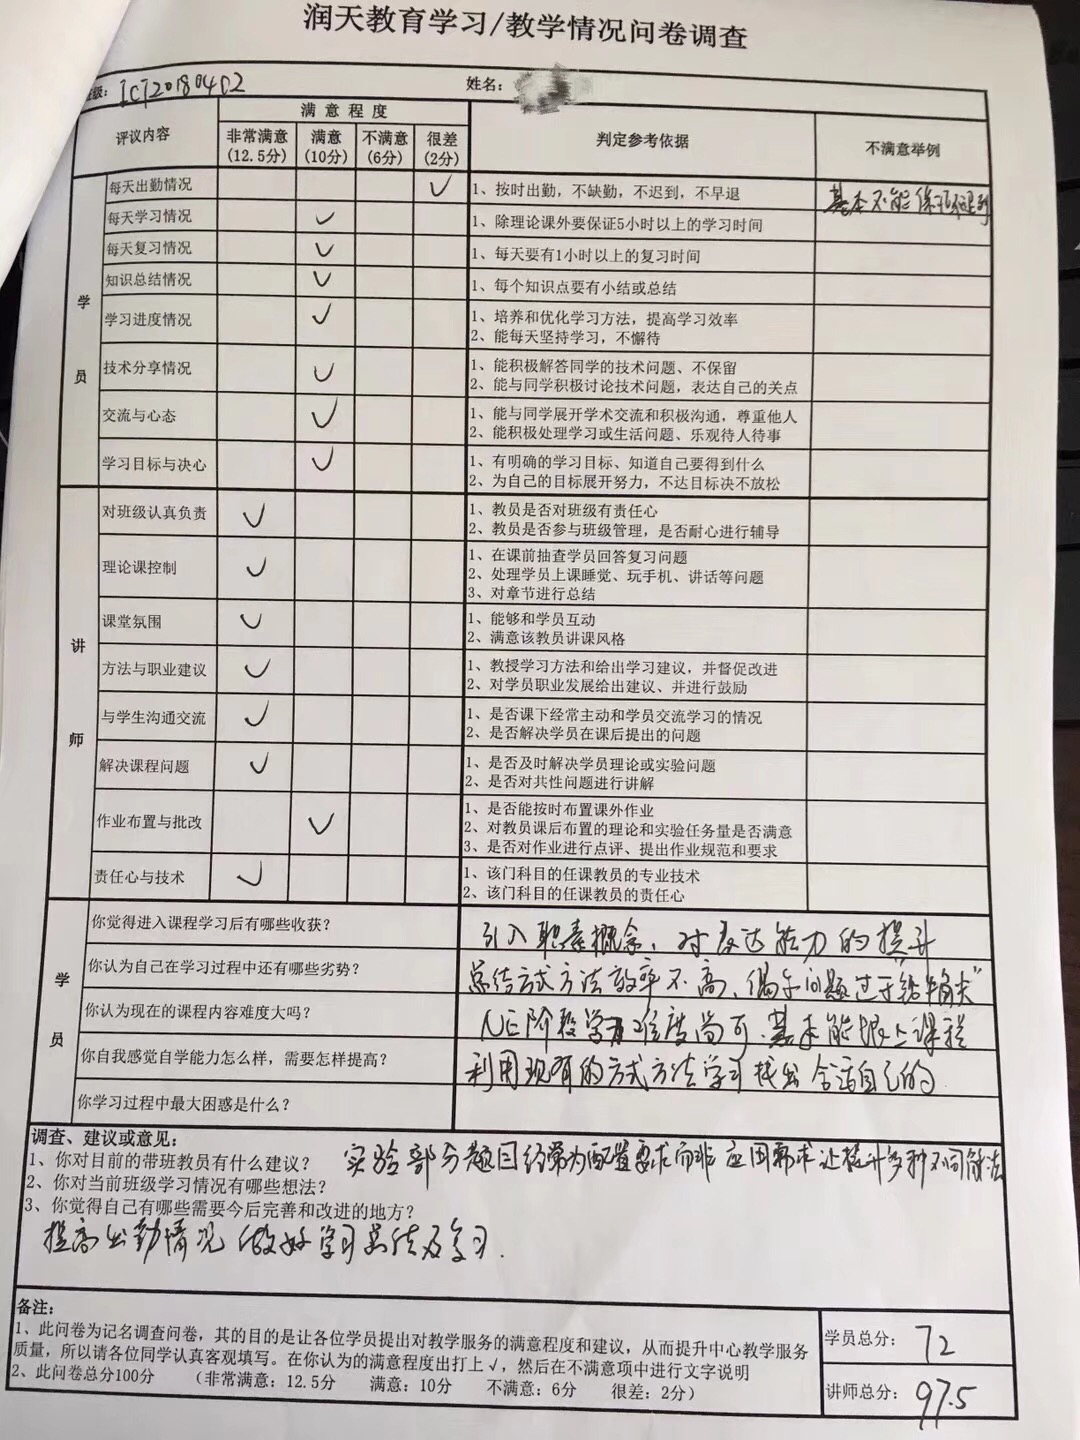 润天教育学习/教学情况问卷调查
级: ICT20180402 姓名:
评议内容 满意程度 判定参考依据 不满意举例
非常满意 (12.5分) 满意 (10分) 不满意 (6分) 很差 (2分)
学员
每天出勤情况 ✓ 1、按时出勤，不缺勤，不迟到，不早退 基本不能保证不迟到
每天学习情况 ✓ 1、除理论课外要保证5小时以上的学习时间
每天复习情况 ✓ 1、每天要有1小时以上的复习时间
知识总结情况 ✓ 1、每个知识点要有小结或总结
学习进度情况 ✓ 1、培养和优化学习方法，提高学习效率
2、能每天坚持学习，不懈待
技术分享情况 ✓ 1、能积极解答同学的技术问题、不保留
2、能与同学积极讨论技术问题，表达自己的关点
交流与心态 ✓ 1、能与同学展开学术交流和积极沟通，尊重他人
2、能积极处理学习或生活问题、乐观待人待事
学习目标与决心 ✓ 1、有明确的学习目标、知道自己要得到什么
2、为自己的目标展开努力，不达目标决不放松
讲师
对班级认真负责 ✓ 1、教员是否对班级有责任心
2、教员是否参与班级管理，是否耐心进行辅导
理论课控制 ✓ 1、在课前抽查学员回答复习问题
2、处理学员上课睡觉、玩手机、讲话等问题
3、对章节进行总结
课堂氛围 ✓ 1、能够和学员互动
2、满意该教员讲课风格
方法与职业建议 ✓ 1、教授学习方法和给出学习建议，并督促改进
2、对学员职业发展给出建议、并进行鼓励
与学生沟通交流 ✓ 1、是否课下经常主动和学员交流学习的情况
2、是否解决学员在课后提出的问题
解决课程问题 ✓ 1、是否及时解决学员理论或实验问题
2、是否对共性问题进行讲解
作业布置与批改 ✓ 1、是否能按时布置课外作业
2、对教员课后布置的理论和实验任务量是否满意
3、是否对作业进行点评、提出作业规范和要求
责任心与技术 ✓ 1、该门科目的任课教员的专业技术
2、该门科目的任课教员的责任心
学员
你觉得进入课程学习后有哪些收获? 引入职素概念，对表达能力的提升
你认为自己在学习过程中还有哪些劣势? 总结方式方法效率不高、偶尔问题过于"钻牛角尖"
你认为现在的课程内容难度大吗? 阶段学习难度尚可.基本能跟上课程
你自我感觉自学能力怎么样，需要怎样提高? 利用现有的方式方法学习找出合适自己的
你学习过程中最大困惑是什么?
调查、建议或意见:
1、你对目前的带班教员有什么建议? 实验部分题目经常为配置要求而非应用需求 让提升多种不同解法
2、你对当前班级学习情况有哪些想法?
3、你觉得自己有哪些需要今后完善和改进的地方?
提高出勤情况 做好学习总结及复习.
备注:
1、此问卷为记名调查问卷，其的目的是让各位学员提出对教学服务的满意程度和建议，从而提升中心教学服务
质量，所以请各位同学认真客观填写。在你认为的满意程度出打上✓，然后在不满意项中进行文字说明
2、此问卷总分100分 （非常满意: 12.5分 满意: 10分 不满意: 6分 很差: 2分）
学员总分: 72
讲师总分: 97.5